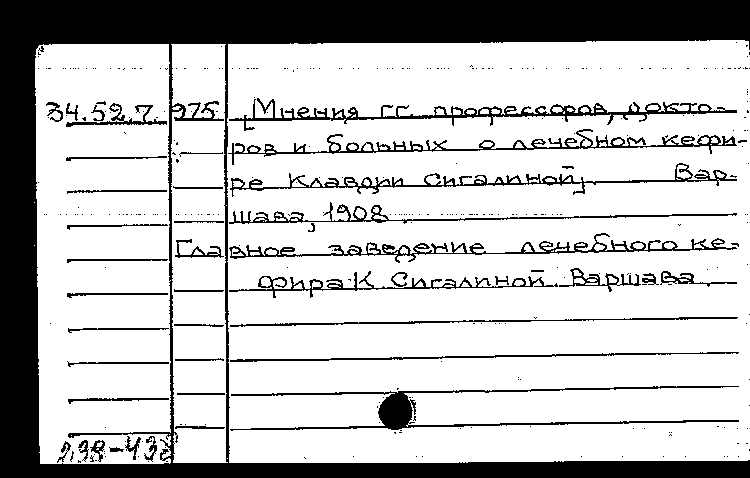 34.52.7. 975 [Мнения гг. профессоров, докто-
ров и больных о лечебном кефи-
ре Клавдии Сигалиной]. Вар-
шава, 1908.
Главное заведение лечебного ке-
фира К Сигалиной. Варшава.
2.38-438